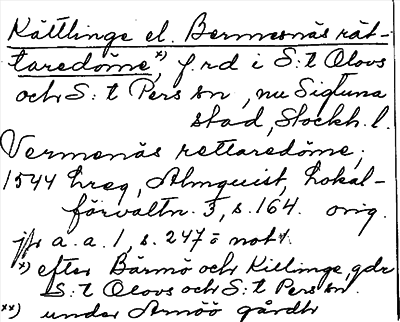 Kättlinge el. Bermesnäs rät-
taredöme*), f.r.d i S:t Olovs
och S:t Pers sn, nu Sigtuna
stad, Stockh. l.
Vermenäs rettaredöme,
1544 hreg, Almquist, Lokal-
förvaltn. 3, s. 164. orig.
jfr a.a. 1, s. 247 o not
*) efter Bärmö och Killinge, gdr
S:t Olovs och S:t Pers sn.
**) under Arnöö gårdh